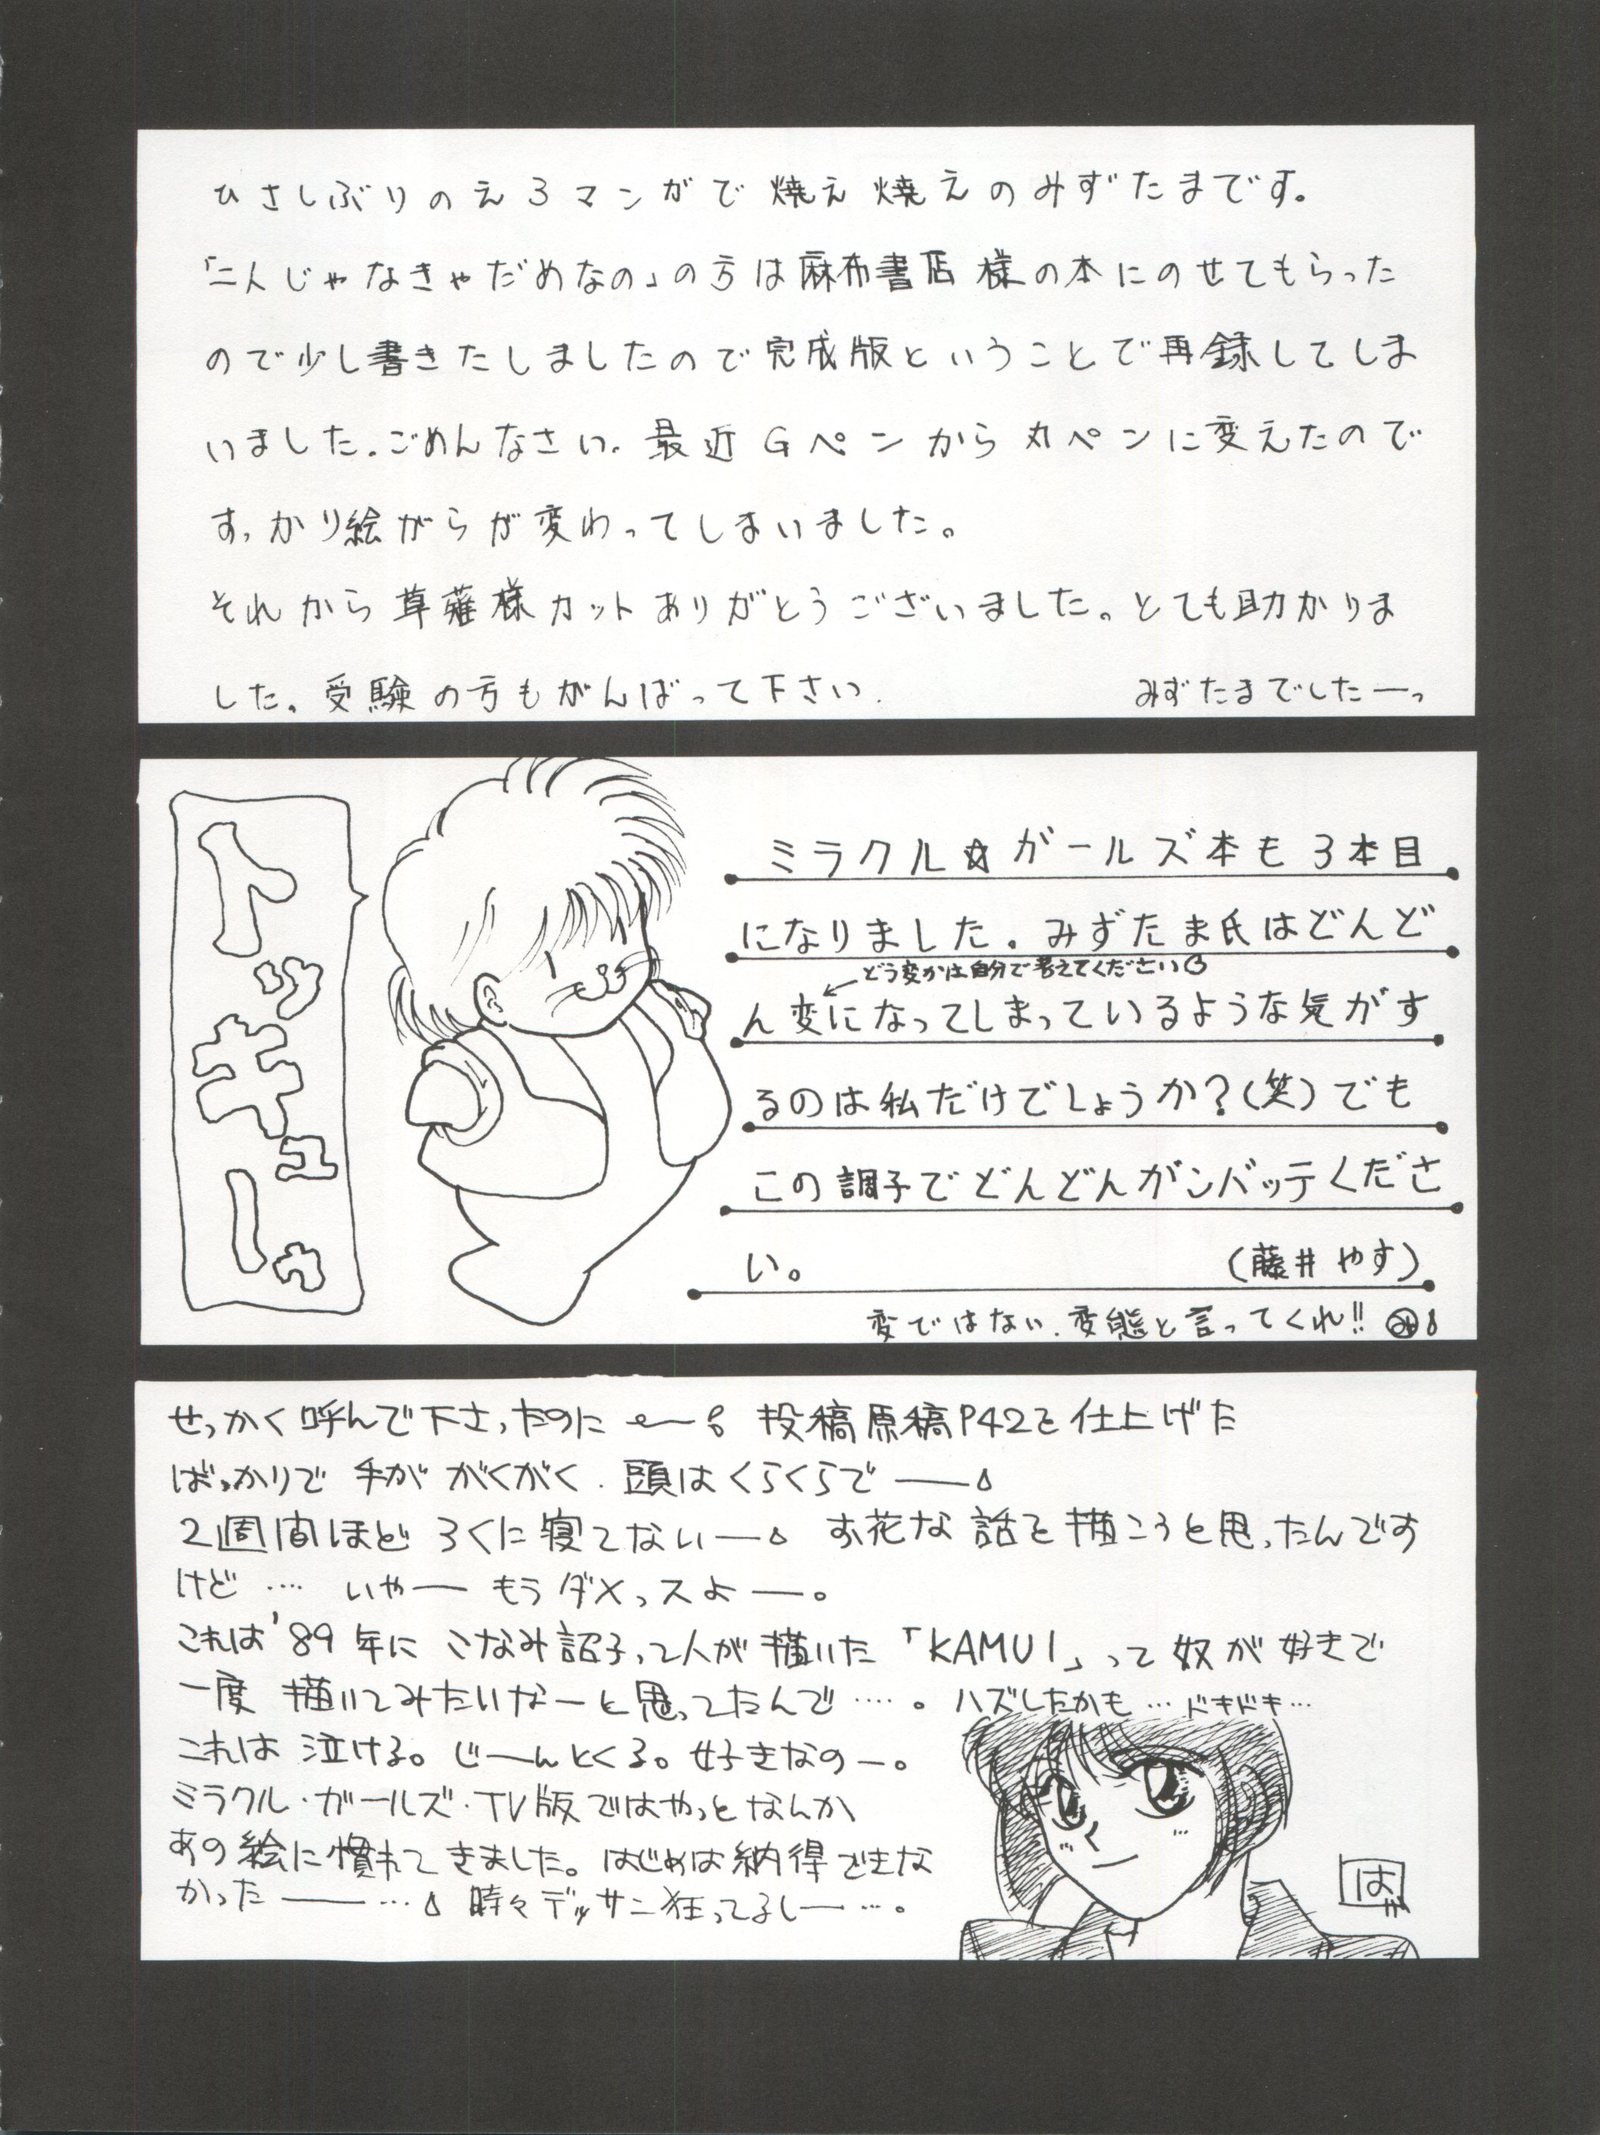 ひさしぶりのえろマンガで燃え燃えのみずたまです。
「二人じゃなきゃだめなの」の方は麻布書店様の本にのせてもらった
ので少し書きたしましたので完成版ということで再録してしま
いました。ごめんなさい。最近Gペンから丸ペンに変えたので
すっかり絵がらが変わってしまいました。
それから草薙様カットありがとうございました。とても助かりま
した。受験の方もがんばって下さい。
みずたまでしたーっ
トッキューゥ
ミラクル☆ガールズ本も3本目
になりました。みずたま氏はどんど
どう変かは自分で考えてください
ん変になってしまっているような気がす
るのは私だけでしょうか?(笑)でも
この調子でどんどんガンバッテくださ
い。
(藤井やす)
変ではない、変態と言ってくれ!!
せっかく呼んで下さったのに 投稿原稿P42を仕上げた
ばっかりで 手が がくがく、頭はくらくらで――
2週間ほど ろくに寝てない― お花な話を描こうと思ったんです
けど…. いやー もうダメっスよ―。
これは'89年に こなみ詔子って人が描いた「KAMUI」って奴が好きで
一度 描いてみたいなーと思ってたんで….。ハズしたかも… ドキドキ…
これは 泣ける。じーんとくる。好きなのー。
ミラクル・ガールズ・TV版ではやっとなんか
あの絵に慣れてきました。はじめは納得できな
かった――… 時々デッサン狂ってるし―…。
は